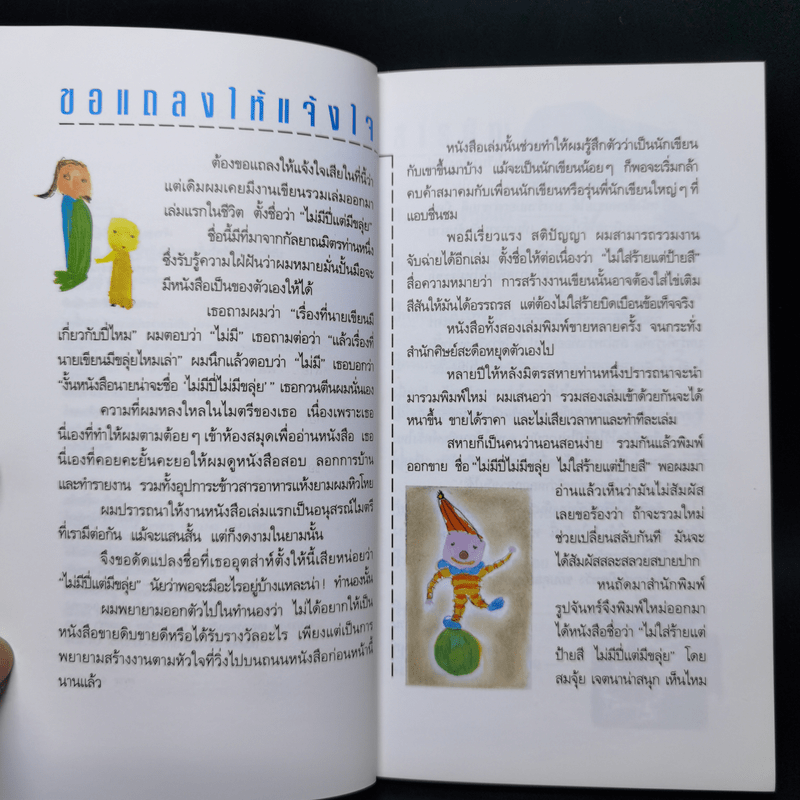 ขอแถลงให้แจ้งใจ
ต้องขอแถลงให้แจ้งใจเสียในที่นี้ว่า
แต่เดิมผมเคยมีงานเขียนรวมเล่มออกมา
เล่มแรกในชีวิต ตั้งชื่อว่า "ไม่มีปี่แต่มีขลุ่ย"
ชื่อนี้มีที่มาจากกัลยาณมิตรท่านหนึ่ง
ซึ่งรับรู้ความใฝ่ฝันว่าผมหมายมั่นปั้นมือจะ
มีหนังสือเป็นของตัวเองให้ได้
เธอถามผมว่า "เรื่องที่นายเขียนมี
เกี่ยวกับปี่ไหม" ผมตอบว่า "ไม่มี" เธอถามต่อว่า "แล้วเรื่องที่
นายเขียนมีขลุ่ยไหมเล่า" ผมนึกแล้วตอบว่า "ไม่มี" เธอบอกว่า
"งั้นหนังสือนายน่าจะชื่อ 'ไม่มีปี่ไม่มีขลุ่ย'" เธอกวนตีนผมนั่นเอง
ความที่ผมหลงใหลในไมตรีของเธอ เนื่องเพราะเธอ
นี่เองที่ทำให้ผมตามต้อยๆ เข้าห้องสมุดเพื่ออ่านหนังสือ เธอ
นี่เองที่คอยคะยั้นคะยอให้ผมดูหนังสือสอบ ลอกการบ้าน
และทำรายงาน รวมทั้งอุปการะข้าวสารอาหารแห้งยามผมหิวโหย
ผมปรารถนาให้งานหนังสือเล่มแรกเป็นอนุสรณ์ไมตรี
ที่เรามีต่อกัน แม้จะแสนสั้น แต่ก็งดงามในยามนั้น
จึงขอดัดแปลงชื่อที่เธออุตส่าห์ตั้งให้นี้เสียหน่อยว่า
"ไม่มีปี่แต่มีขลุ่ย" นัยว่าพอจะมีอะไรอยู่บ้างแหละน่า! ทำนองนั้น
ผมพยายามออกตัวไปในทำนองว่า ไม่ได้อยากให้เป็น
หนังสือขายดิบขายดีหรือได้รับรางวัลอะไร เพียงแต่เป็นการ
พยายามสร้างงานตามหัวใจที่วิ่งไปบนถนนหนังสือก่อนหน้านี้
นานแล้ว
หนังสือเล่มนั้นช่วยทำให้ผมรู้สึกตัวว่าเป็นนักเขียน
กับเขาขึ้นมาบ้าง แม้จะเป็นนักเขียนน้อยๆ ก็พอจะเริ่มกล้า
คบค้าสมาคมกับเพื่อนนักเขียนหรือรุ่นพี่นักเขียนใหญ่ๆ ที่
แอบชื่นชม
พอมีเรี่ยวแรง สติปัญญา ผมสามารถรวมงาน
จับฉ่ายได้อีกเล่ม ตั้งชื่อให้ต่อเนื่องว่า "ไม่ใส่ร้ายแต่ป้ายสี"
สื่อความหมายว่า การสร้างงานเขียนนั้นอาจต้องใส่ไข่เติม
สีสันให้มันได้อรรถรส แต่ต้องไม่ใส่ร้ายบิดเบือนข้อเท็จจริง
หนังสือทั้งสองเล่มพิมพ์ขายหลายครั้ง จนกระทั่ง
สำนักศิษย์สะดือหยุดตัวเองไป
หลายปีให้หลังมิตรสหายท่านหนึ่งปรารถนาจะนำ
มารวมพิมพ์ใหม่ ผมเสนอว่า รวมสองเล่มเข้าด้วยกันจะได้
หนาขึ้น ขายได้ราคา และไม่เสียเวลาหาและทำทีละเล่ม
สหายก็เป็นคนว่านอนสอนง่าย รวมกันแล้วพิมพ์
ออกขาย ชื่อ "ไม่มีปี่ไม่มีขลุ่ย ไม่ใส่ร้ายแต่ป้ายสี" พอผมมา
อ่านแล้วเห็นว่ามันไม่สัมผัส
เลยขอร้องว่า ถ้าจะรวมใหม่
ช่วยเปลี่ยนสลับกันที มันจะ
ได้สัมผัสสละสลวยสบายปาก
หนถัดมาสำนักพิมพ์
รูปจันทร์จึงพิมพ์ใหม่ออกมา
ได้หนังสือชื่อว่า "ไม่ใส่ร้ายแต่
ป้ายสี ไม่มีปี่แต่มีขลุ่ย" โดย
สมจุ้ย เจตนาน่าสนุก เห็นไหม